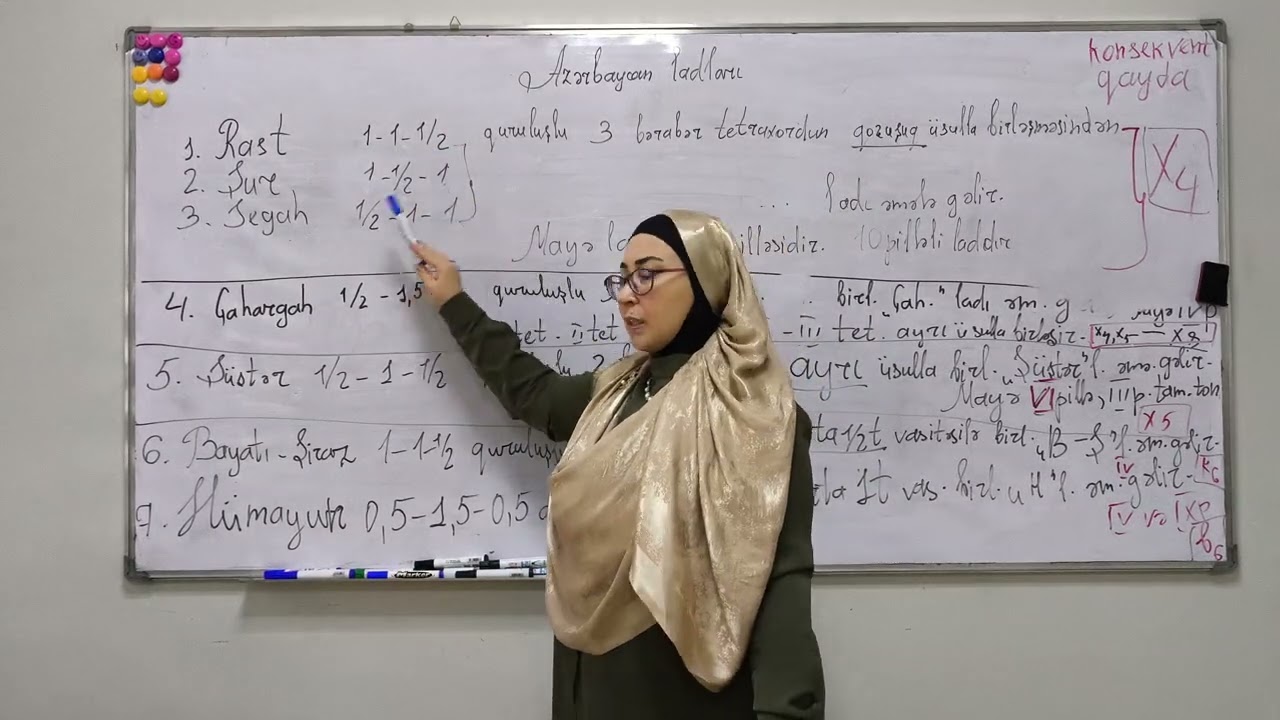 Azərbaycan ladları
konsekvent
qayda
1. Rast 1-1-1/2 quruluşlu 3 bərabər tetraxordun qovuşuq üsulla birləşməsindən X4
2. Şur 1-1/2-1 ... ladı əmələ gəlir.
3. Segah 1/2-1-1
Mayə pilləsidir. 10 pilləli laddır
4. Çahargah 1/2-1,5 quruluşlu birl. "Çah." ladı əm. g mayə IV p
tet. II tet - III tet. ayrı üsulla birləşir. X4, X5 — X8
5. Şüştər 1/2-1-1/2 2 ayrı üsulla birl. "Şüştər" l. əmə. gəlir.
Mayə VI pillə, III p. tam. ton
X5
6. Bayatı-Şiraz 1-1-1/2 quruluşlu 1/2 t vasitəsilə birl. "B-Ş" l. əm. gəlir.
7. Hümayun 0,5-1,5-0,5 1t vas. birl. "H" l. əm. gəlir.
IV və